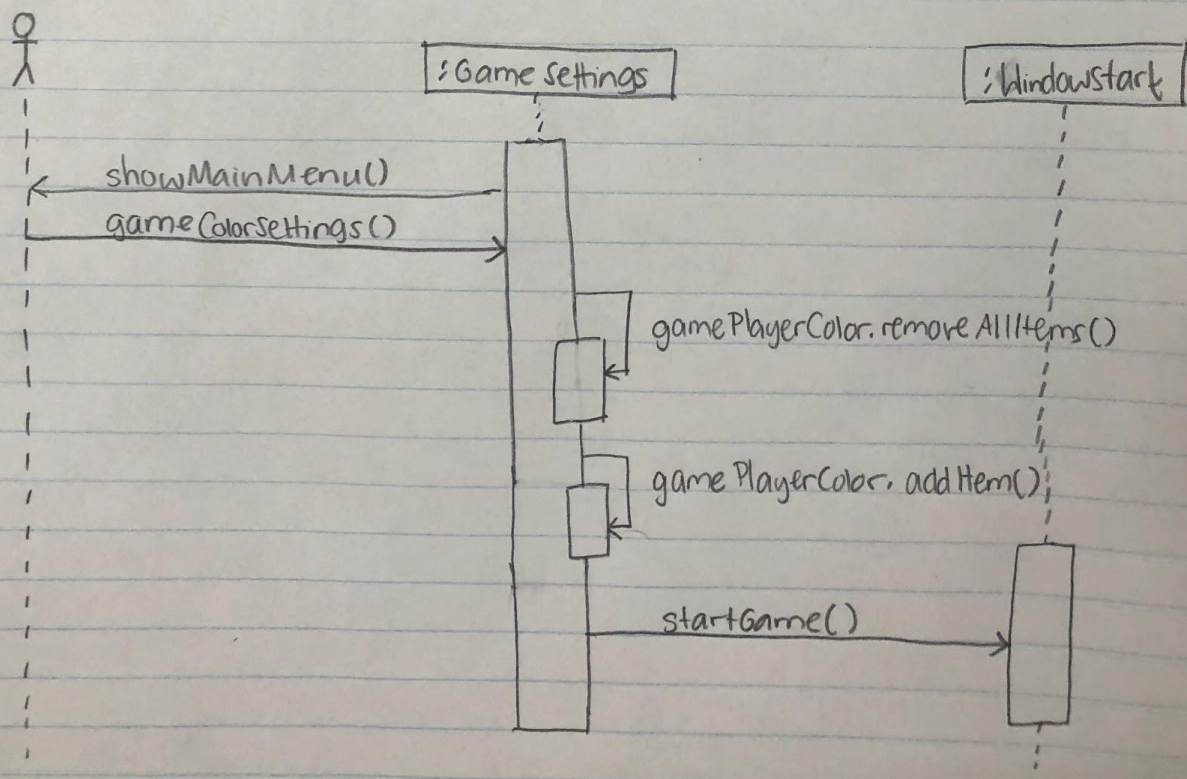 :Game Settings
:Windowstart
showMainMenu()
gameColorSettings()
gamePlayerColor.removeAllItems()
gamePlayerColor.addItem()
startGame()